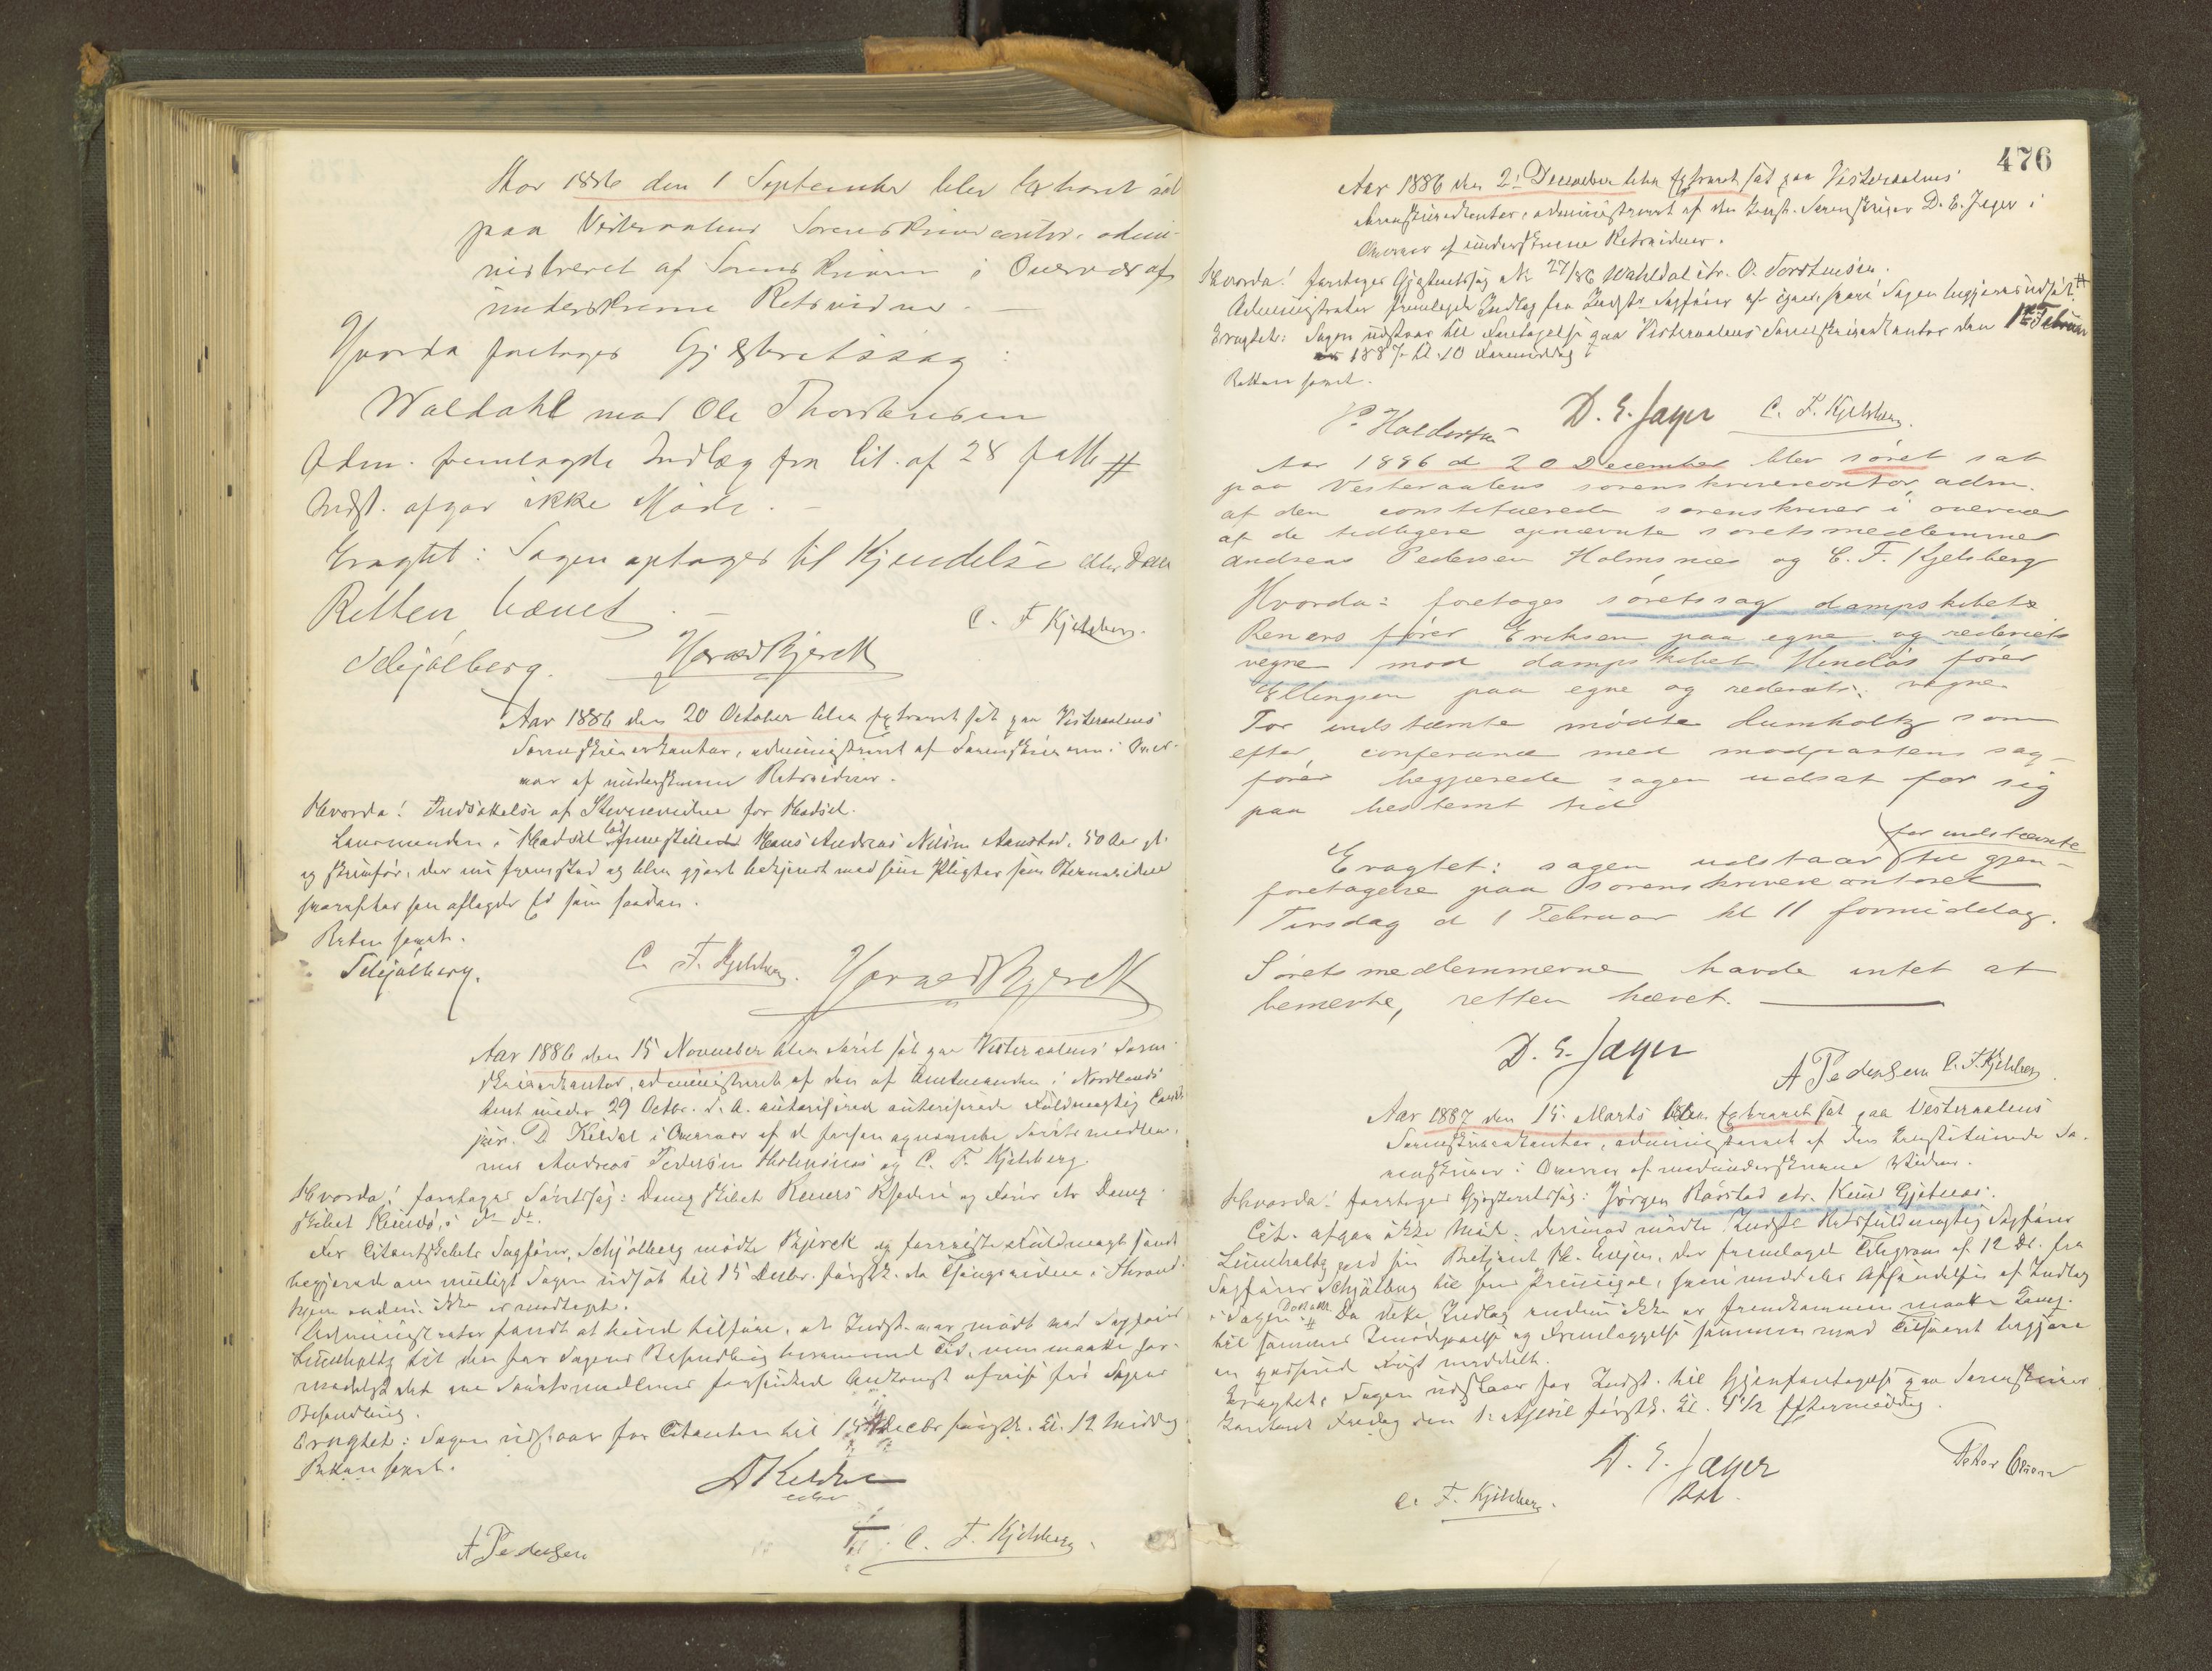 Aar 1886 den 1 September blev Exharet sat
paa Vesteraalens Sorenskrivercontor, admi-
nistreret af Sorenskriveren i Overvær af
underskrevne Retsvidner. —
Hvorda foretoges Gjæsteretssag:
Waldahl mod Ole Thorstensen
Adm. fremlagde Indlæg fra Cit. af 28 #
Indst. afgav ikke Møde. —
Eragtet: Sagen optages til Kjendelse eller Dom
Retten hævet. —
C. F Kjelsberg.
Schjølberg. Horned Bjerck
Aar 1886 den 20 October blev Extraret sat paa Vesteraalens
Sorenskriverkontor, administreret af Sorenskriveren i Over-
vær af underskrevne Retsvidner.
Hvorda! Indsættelse af Stevnevidne for Hadsel.
Lensmanden i Hadsel lod fremstille Hans Andreas Nilsen Aanstad, 50 Aar gl.
og skrivfør, der nu fremstod og blev gjort bekjendt med sine Pligter som Stevnevidne
hvorefter han aflagde Ed som saadan.
Retten hævet.
Schjølberg. C. F. Kjelsberg. Horned Bjerck
Aar 1886 den 15 November blev Søret sat paa Vesteraalens Soren-
skriverkontor, administreret af den af Amtmanden i Nordlands
Amt under 29 Octbr. d. A. autoriserede Fuldmægtig Cand.
jur. D Keldal i Overvær af de forhen opnævnte Søretsmedlem-
mer Andreas Pedersen Holmsnæs og C. F. Kjelsberg.
Hvorda! foretages Søretssag: Dampskibet Reners Rhederi og Fører ctr Damp-
skibet Hindø's do do.
For Citantskabets Sagfører, Schjølberg mødte Bjerck og foreviste Fuldmagt samt
begjærede om muligt Sagen udsat til 15 Decbr. førstk. da Thingsvidne i Thrond-
hjem endnu ikke er modtaget.
Administrator fandt at kunne tilføre, at Indst. var mødt ved Sagfører
Lumholtz til den for Sagens Behandling berammede Tid, men maatte for-
medelst det ene Søretsmedlems forsinkede Ankomst afreise før Sagens
Behandling.
Eragtet: Sagen udstaar for Citanten til 15 Decbr førstk. Kl. 12 Middag
Retten hævet.
D Keldal
A Pedersen C. F. Kjelsberg.
476
Aar 1886 den 2. December blev Extraret sat paa Vesteraalens
Sorenskriverkontor, administreret af den konst. Sorenskriver D. E. Jæger i
Overvær af underskrevne Retsvidner.
Hvorda! foretoges Gjæsteretssag No 27/86 Wahldal ctr. O. Torstensen.
Administrator fremlagde Indlæg fra Indst's Sagfører hvori Sagen begjæres udsat. #
Eragtet: Sagen udstaar til Foretagelse paa Vesteraalens Sorenskriverkontor den 1ste Februar
1887 Kl. 10 Formiddag
Retten hævet.
P. Haldorsen D. E. Jæger C. F. Kjelsberg.
Aar 1886 d 20 December blev søret sat
paa Vesteraalens sorenskrivercontor, adm.
af den constituerede sorenskriver i overvær
af de tidligere opnævnte søretsmedlemmer
Andreas Pedersen Holmsnæs og C. F. Kjelsberg
Hvorda: foretoges søretssag dampskibet
Reners fører Eriksen paa egne og rederiets
vegne mod dampskibet Hindøs fører
Ellingsen paa egne og rederiets vegne.
For indstævnte mødte Lumholtz som
efter conferance med modpartens sag-
fører begjærede sagen udsat for sig
paa bestemt tid
for indstævnte
Eragtet: sagen udstaar til gjen-
foretagelse paa sorenskrivercontoret
Tirsdag d 1 Februar kl 11 formiddag.
Søretsmedlemmerne havde intet at
bemerke, retten hævet. —
D. E. Jæger
A Pedersen C. F. Kjelsberg
Aar 1887 den 15. Marts blev Extraret sat paa Vesteraalens
Sorenskriverkontor, administreret af den konstituerede So-
renskriver i Overvær af medunderskrevne Vidner.
Hvorda! foretoges Gjæsteretssag: Jørgen Raastad ctr. Knud Gjetnæs.
Cit. afgav ikke Møde, derimod mødte Indst. Retsfuldmægtig Sagfører
Lumholtz ved sin Betjent, der fremlagde Telegram af 12 ds. fra
Sagfører Schjølberg til sin Principal, hvori meddeles Afsendelsen af Indlæg
i Sagen. # Da dette Indlæg endnu ikke er fremkommen maatte Comp.
til sammes Imødegaaelse og Fremlæggelse sammen med Tilsvaret begjære
en passende Frist meddelt.
Eragtet: Sagen udstaar for Indst. til Gjenforetagelse paa Sorenskriver-
kontoret Fredag den 1. April førstk. Kl. 4 1/2 Eftermiddag.
D. E. Jæger
C. F. Kjelsberg. Peter Olsen